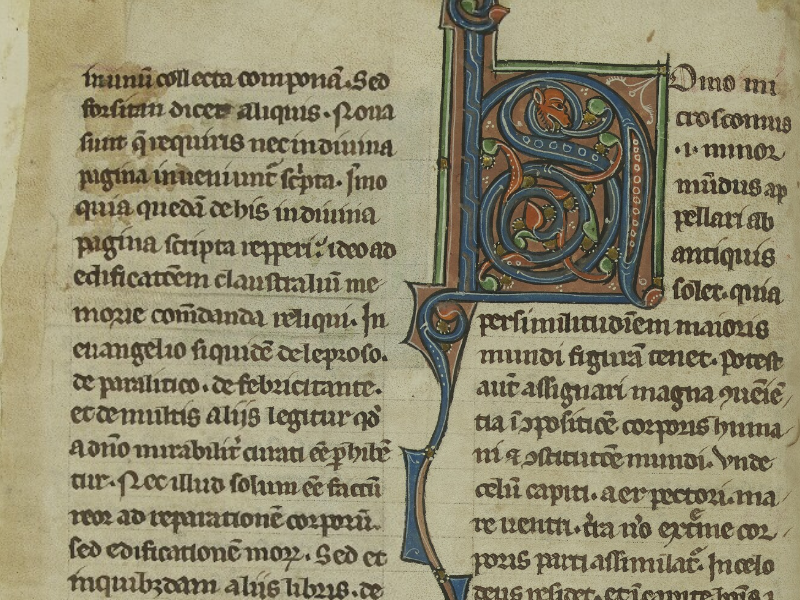 in unū collecta componā. Sed
forsitan dicet aliquis. Nova
sunt q̄ requiris nec in divina
pagina inveniunt᷑ sc̄pta. Imo
quia quedā de his in divina
pagina scripta repperi: ideo ad
edificatōem claustraliū me-
morie com̄danda reliqui. In
euangelio siquidē de leproso.
de paralitico. de febricitante.
et de multis aliis legitur qđ
a dn̄o mirabilit᷑ curati eē ꝑhibē
tur. Nec illud solum eē factū
reor ad reparationē corporū.
sed edificationē moꝝ. Sed et
in quibꝫdam aliis libris. de
Homo mi
croscomus
.i. minor
mūdus ap
pellari ab
antiquis
solet. quia
per similitudīem maioris
mundi figurā tenet. potest
aut̄ assignari magna ꝯueniē
tia ī ꝯpositiōe corporis huma
ni ⁊ ꝯstitutōe mundi. Vnde
celū capiti. aer pectori. ma
re uentri. t̄ra u̾o ext̄me cor
poris parti assimilat᷑. In celo
deus residet.